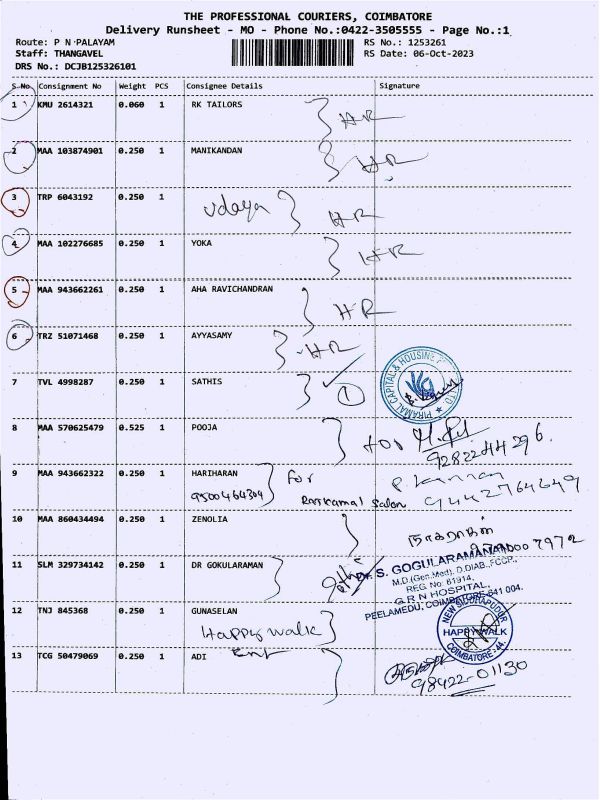 THE PROFESSIONAL COURIERS, COIMBATORE
Delivery Runsheet - MO - Phone No.:0422-3505555 - Page No.:1
Route: P N PALAYAM
RS No.: 1253261
Staff: THANGAVEL
RS Date: 06-Oct-2023
DRS No.: DCJB125326101
S No Consignment No Weight PCS Consignee Details Signature
1 KMU 2614321 0.060 1 RK TAILORS HR
2 MAA 103874901 0.250 1 MANIKANDAN HR
3 TRP 6043192 0.250 1 Udaya HR
4 MAA 102276685 0.250 1 YOKA HR
5 MAA 943662261 0.250 1 AHA RAVICHANDRAN HR
6 TRZ 51071468 0.250 1 AYYASAMY HR
7 TVL 4998287 0.250 1 SATHIS 1
PIRAMAL CAPITAL & HOUSING
8 MAA 570625479 0.525 1 POOJA for
92822 44296
9 MAA 943662322 0.250 1 HARIHARAN for P Kannan
9500464304 Rajkamal Salon 9442764649
10 MAA 860434494 0.250 1 ZENOLIA நாகராஜன்
11 SLM 329734142 0.250 1 DR GOKULARAMAN
Dr. S. GOGULARAMANAN
M.D.(Gen.Med), D.DIAB., FCCP.,
REG. No: 61914,
G R N HOSPITAL,
PEELAMEDU, COIMBATORE-641 004.
12 TNJ 845368 0.250 1 GUNASELAN
Happy walk
NEW SIDDHAPUDUR
HAPPY WALK
COIMBATORE - 44.
13 TCG 50479069 0.250 1 ADI Ent
98422-01130